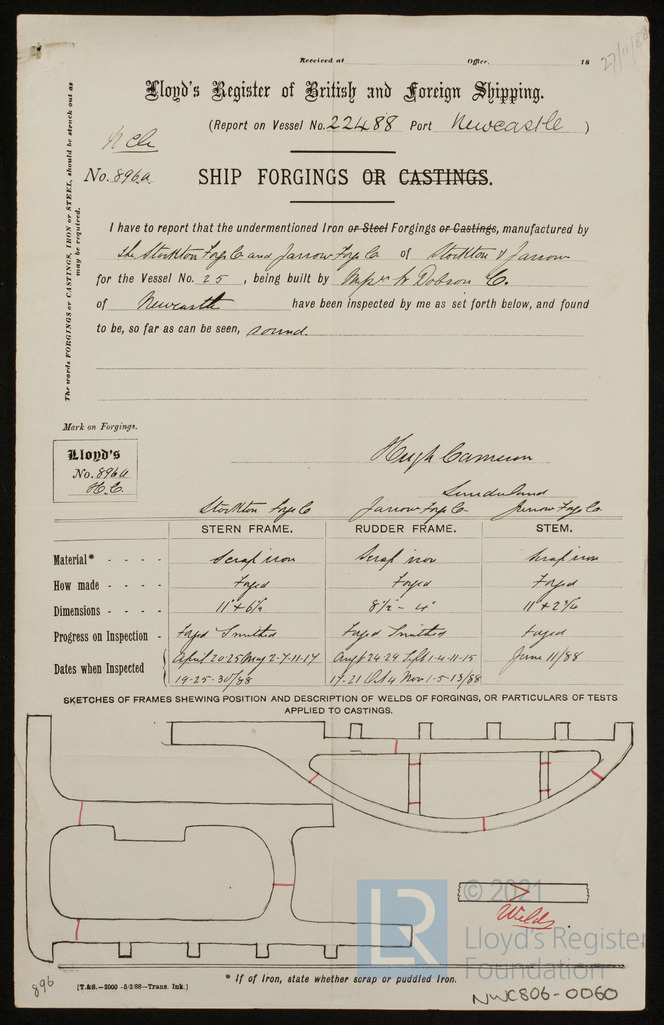 Received at Office, 18
27/11/88
Lloyd's Register of British and Foreign Shipping.
(Report on Vessel No. 22488 Port Newcastle )
No. 896a
SHIP FORGINGS OR CASTINGS.
The words FORGINGS or CASTINGS, IRON or STEEL, should be struck out as may be required.
I have to report that the undermentioned Iron or Steel Forgings or Castings, manufactured by
the Stockton Forge Co and Jarrow Forge Co of Stockton & Jarrow
for the Vessel No. 25, being built by W Dobson Co.
of Newcastle have been inspected by me as set forth below, and found
to be, so far as can be seen, sound.
Mark on Forgings.
Lloyd's
No. 896a
H.C.
Hugh Cameron
Sunderland
Stockton Forge Co Jarrow Forge Co Jarrow Forge Co
STERN FRAME. RUDDER FRAME. STEM.
Material* - - - - Scrap iron Scrap iron Scrap iron
How made - - - - Forged Forged Forged
Dimensions - - - - 11" + 6½ 8½ - 4" 11" + 2¾
Progress on Inspection - Forged Smithed Forged Smithed Forged
Dates when Inspected April 20-25 May 2-7-11-17 Augt 24-29 Sept 1-4-11-15 June 11/88
19-25-30/88 17-21 Oct 4 Nov 1-5-13/88
SKETCHES OF FRAMES SHEWING POSITION AND DESCRIPTION OF WELDS OF FORGINGS, OR PARTICULARS OF TESTS
APPLIED TO CASTINGS.
Welds
© 2021
Lloyd's Register
Foundation
LR
* If of Iron, state whether scrap or puddled Iron.
896
[T.&S.—2000 -5/3/88—Trans. Ink.]
NWC806-0060